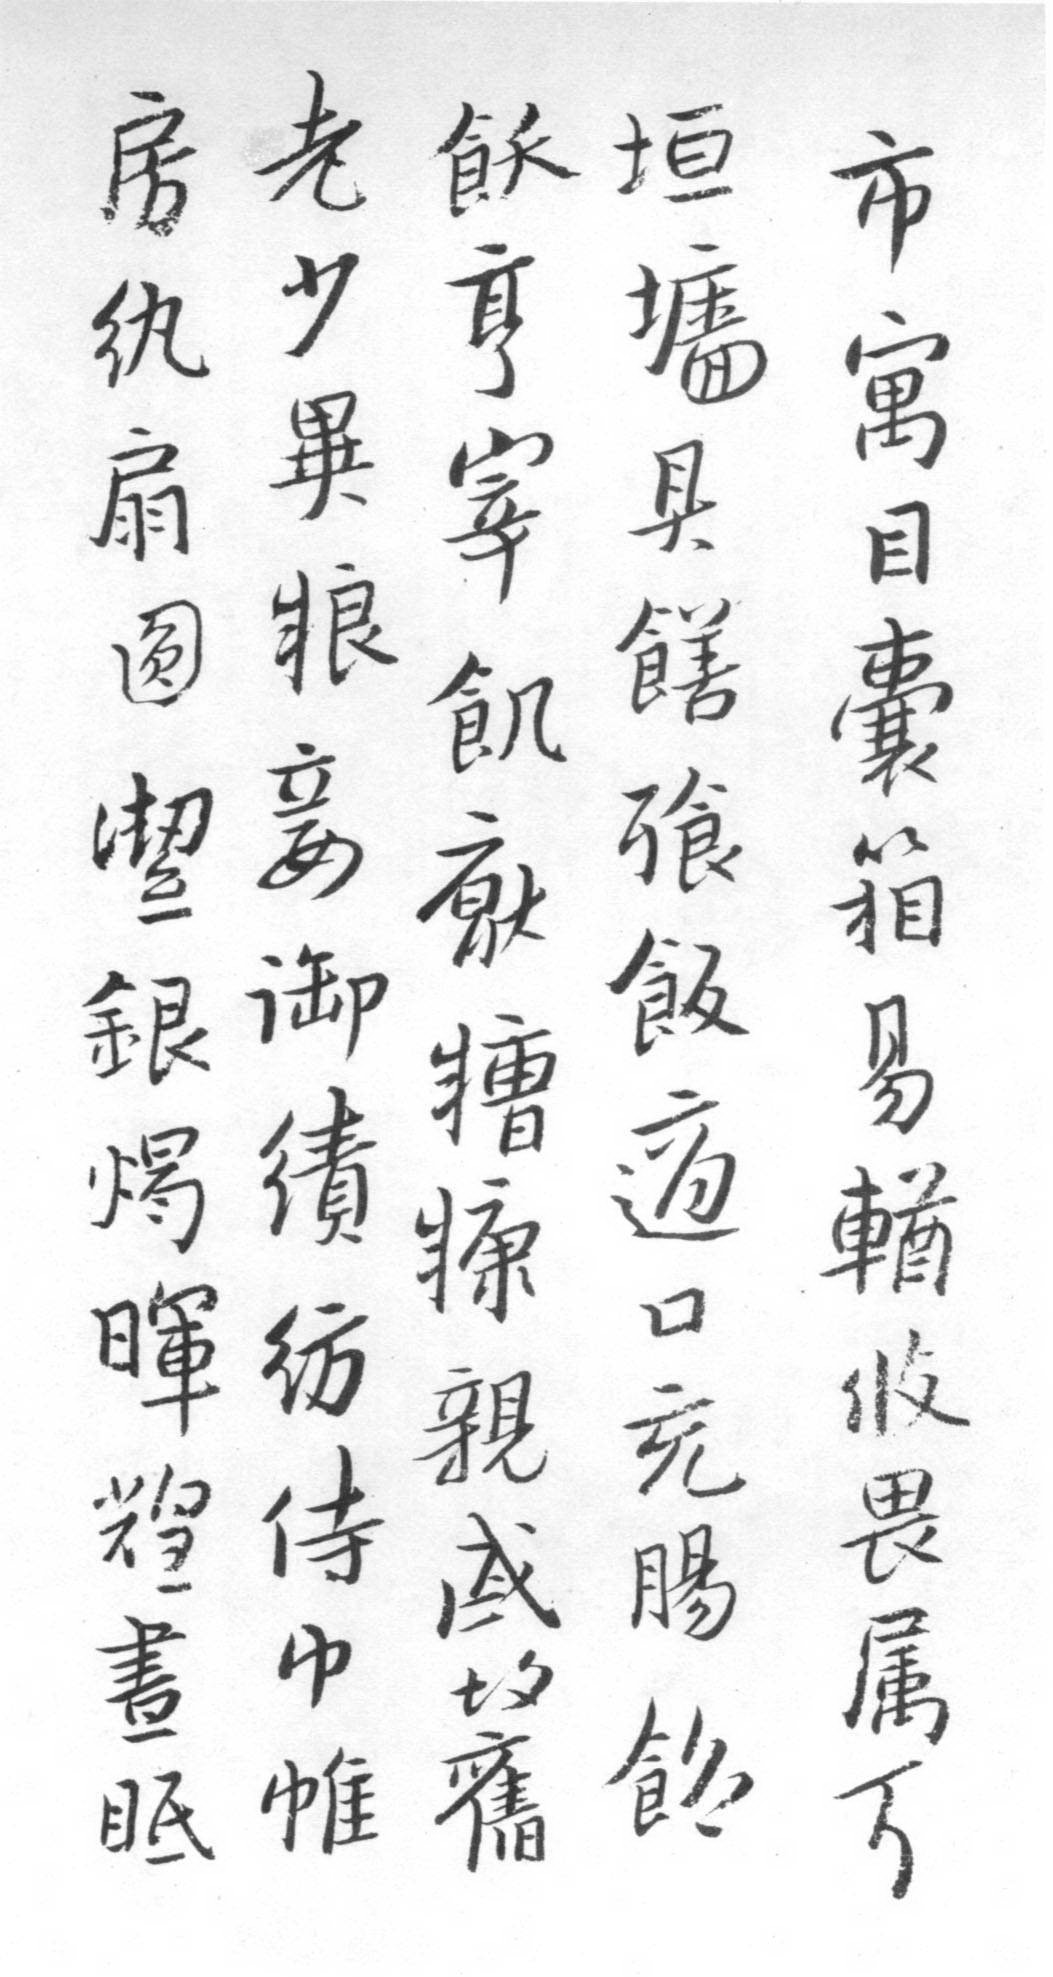 市寓目囊箱易輶攸畏属耳
垣墻具饍飱飯適口充腸飽
飫亨宰飢厭糟糠親戚故舊
老少異粮妾御績紡侍巾帷
房紈扇圓潔銀燭暉煌晝眠